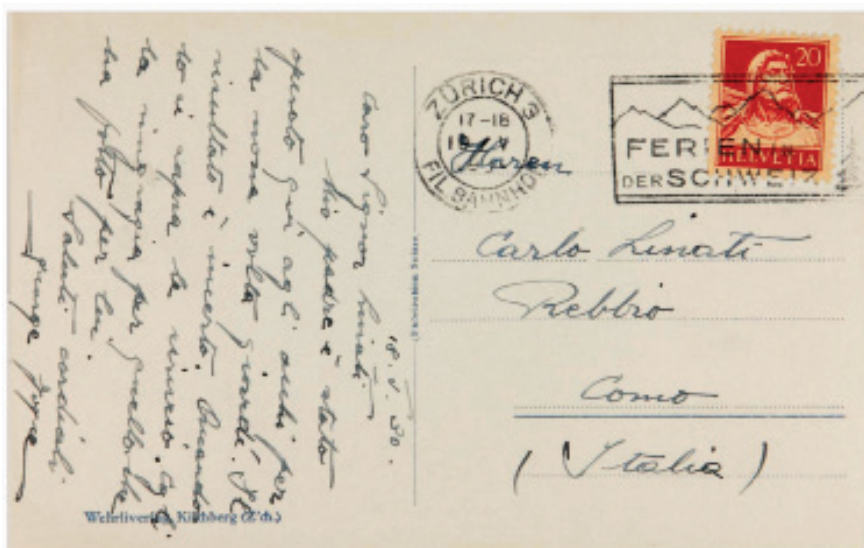 18.V.30.
Caro Signor Linati
Mio padre è stato
operato qui agli occhi per
la nona volta giovedì. Il
risultato è incerto. Quando
lo si saprà le scriverò. Egli
la ringrazia per quello che
ha fatto per lui.
Saluti cordiali
Joyce
Wehrliverlag, Kilchberg (Zch.)
ZÜRICH 3
17-18
FIL. BAHNHOF
20
HELVETIA
FERIEN IN
DER SCHWEIZ
Herrn
Carlo Linati
Rebbio
Como
(Italia)